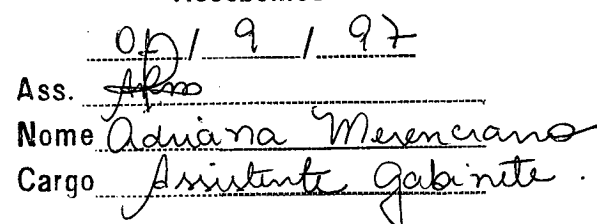 / 9 / 97
Ass.
Nome Adriana Merenciano
Cargo Assistente Gabinete.